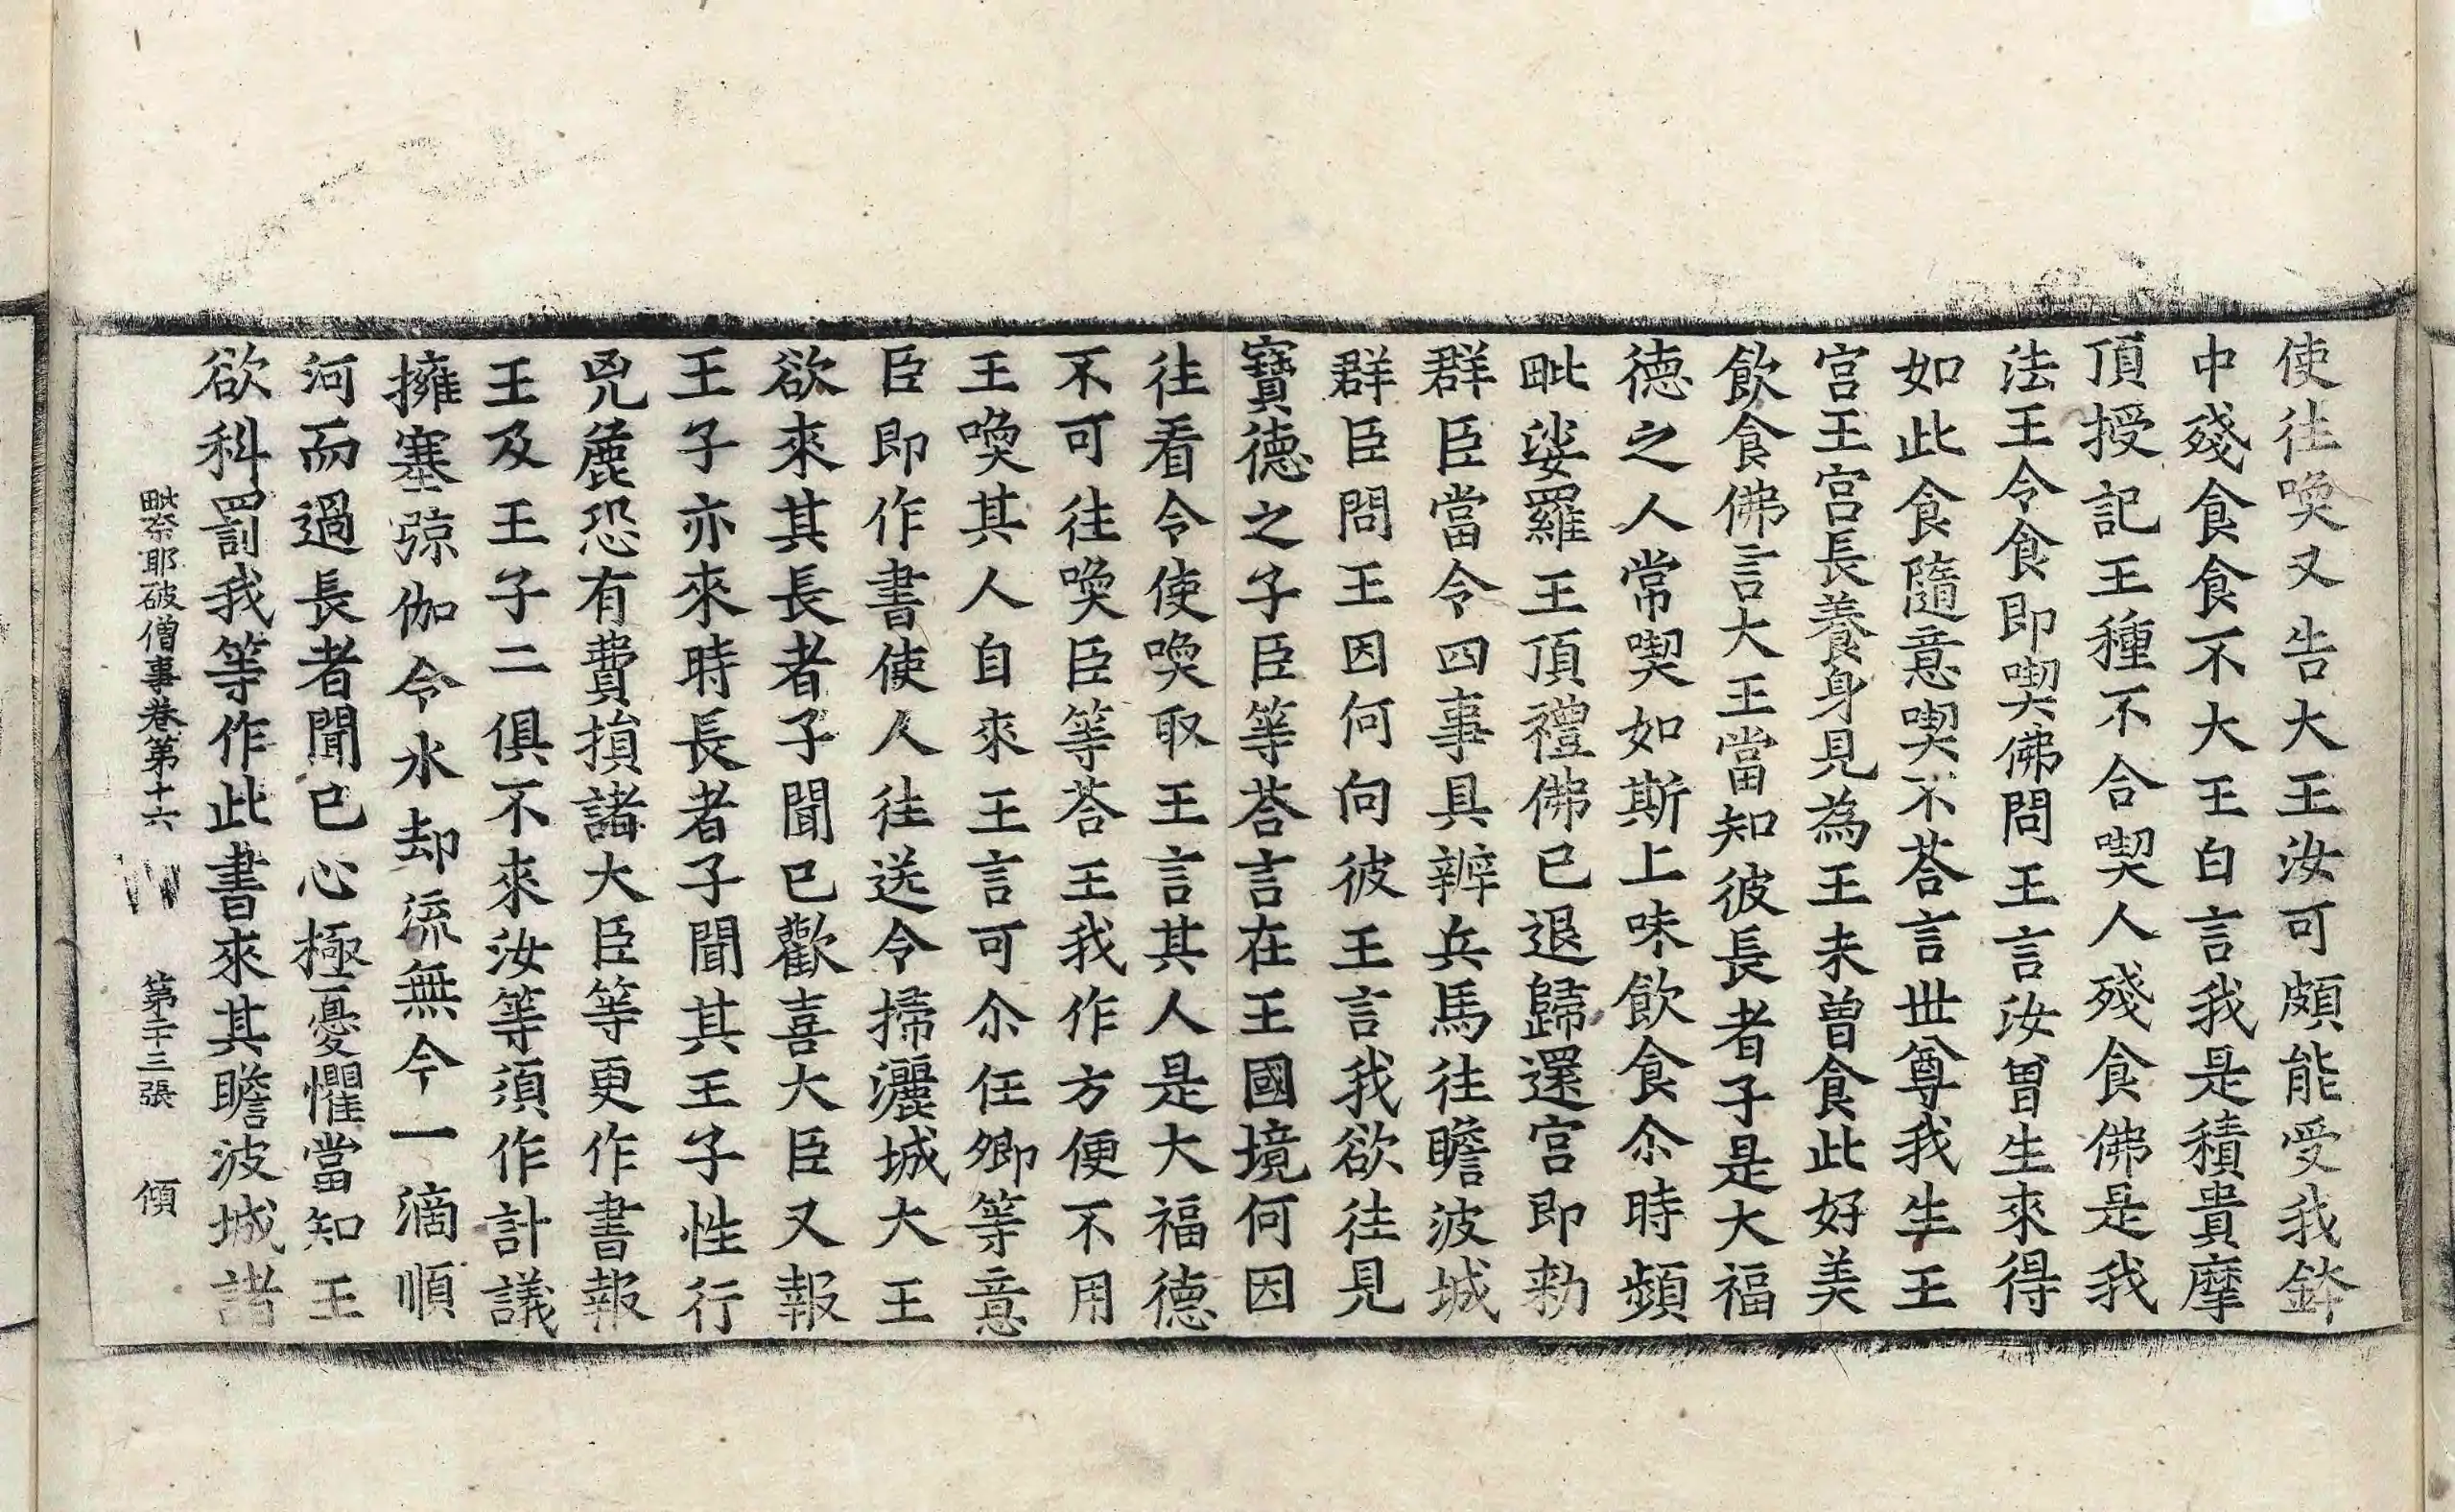 使往喚又告大王汝可頗能受我鉢
中殘食食不大王白言我是積貴摩
頂授記王種不合喫人殘食佛是我
法王令食食即喫佛問王言汝曾生來得
如此食隨意喫不荅言世尊我生王
宮王宮長養身見為王未曾食此好美
飲食佛言大王當知彼長者子是大福
德之人常喫如斯上味飲食尒時頻
毗娑羅王頂禮佛已退歸還宮即勑
群臣當令四事具辦兵馬往瞻波城
群臣問王因何向彼王言我欲往見
寶德之子臣等荅言在王國境何因
往看令使喚取王言其人是大福德
不可往喚臣等荅王我作方便不用
王喚其人自來王言可尒任卿等意
臣即作書使人往送令掃灑城大王
欲來其長者子聞已歡喜大臣又報
王子亦來時長者子聞其王子性行
兇麁恐有費損諸大臣等更作書報
王及王子二俱不來汝等須作計議
擁塞弶伽令水却流無令一滴順
河而過長者聞已心極憂懼當知王
欲科罰我等作此書來其瞻波城諸
毗奈耶破僧事卷第十六 第二十三張 傾